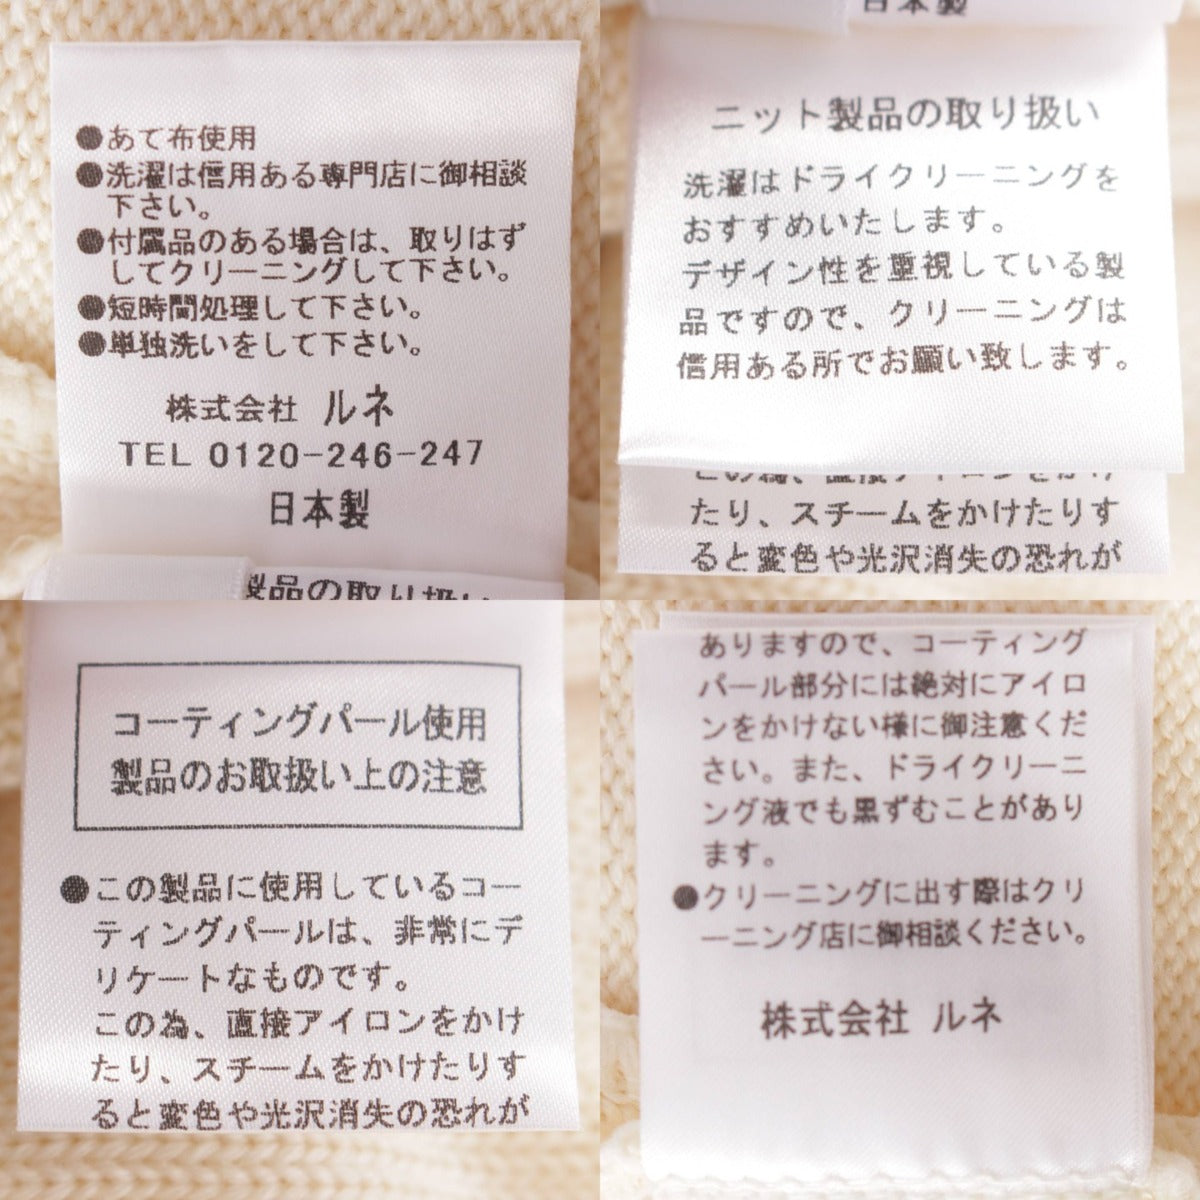 ●あて布使用
●洗濯は信用ある専門店に御相談
下さい。
●付属品のある場合は、取りはず
してクリーニングして下さい。
●短時間処理して下さい。
●単独洗いをして下さい。
株式会社 ルネ
TEL 0120-246-247
日本製
製品の取り扱い
日本製
ニット製品の取り扱い
洗濯はドライクリーニングを
おすすめいたします。
デザイン性を重視している製
品ですので、クリーニングは
信用ある所でお願い致します。
この為、直接アイロンをかけ
たり、スチームをかけたりす
ると変色や光沢消失の恐れが
コーティングパール使用
製品のお取扱い上の注意
●この製品に使用しているコー
ティングパールは、非常にデ
リケートなものです。
この為、直接アイロンをかけ
たり、スチームをかけたりす
ると変色や光沢消失の恐れが
ありますので、コーティング
パール部分には絶対にアイロ
ンをかけない様に御注意くだ
さい。また、ドライクリーニ
ング液でも黒ずむことがあり
ます。
●クリーニングに出す際はクリ
ーニング店に御相談ください。
株式会社 ルネ